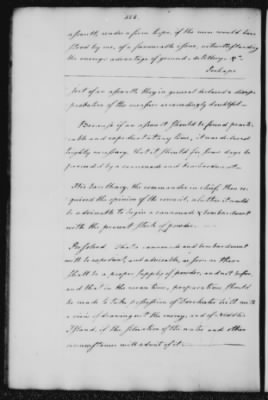 assault, under a firm hope, if the men would have
stood by me, of a favourable issue, notwithstanding
the enemys advantage of ground, artillery &ca.
Perhaps
sort of an assault they in general declared a disap-
probation of the measure as exceedingly doubtful.
Because if an assault should be found practi-
cable and expedient at any time, it was declared
highly necessary, that it should for some days be
preceeded by a cannonade and bombardment.
His Excellency the commander in chief then re-
quired the opinion of the council, whether it would
be advisable to begin a cannonade & bombardment
with the present stock of powder.
Resolved That a cannonade and bombardment
will be expedient, and advisable, as soon as there
shall be a proper supply of powder, and not before
and that in the mean time, preparations should
be made to take possession of Dorchester hill with
a view of drawing out the enemy, and of Noddles
Island, if the situation of the water and other
circumstances will admit of it.